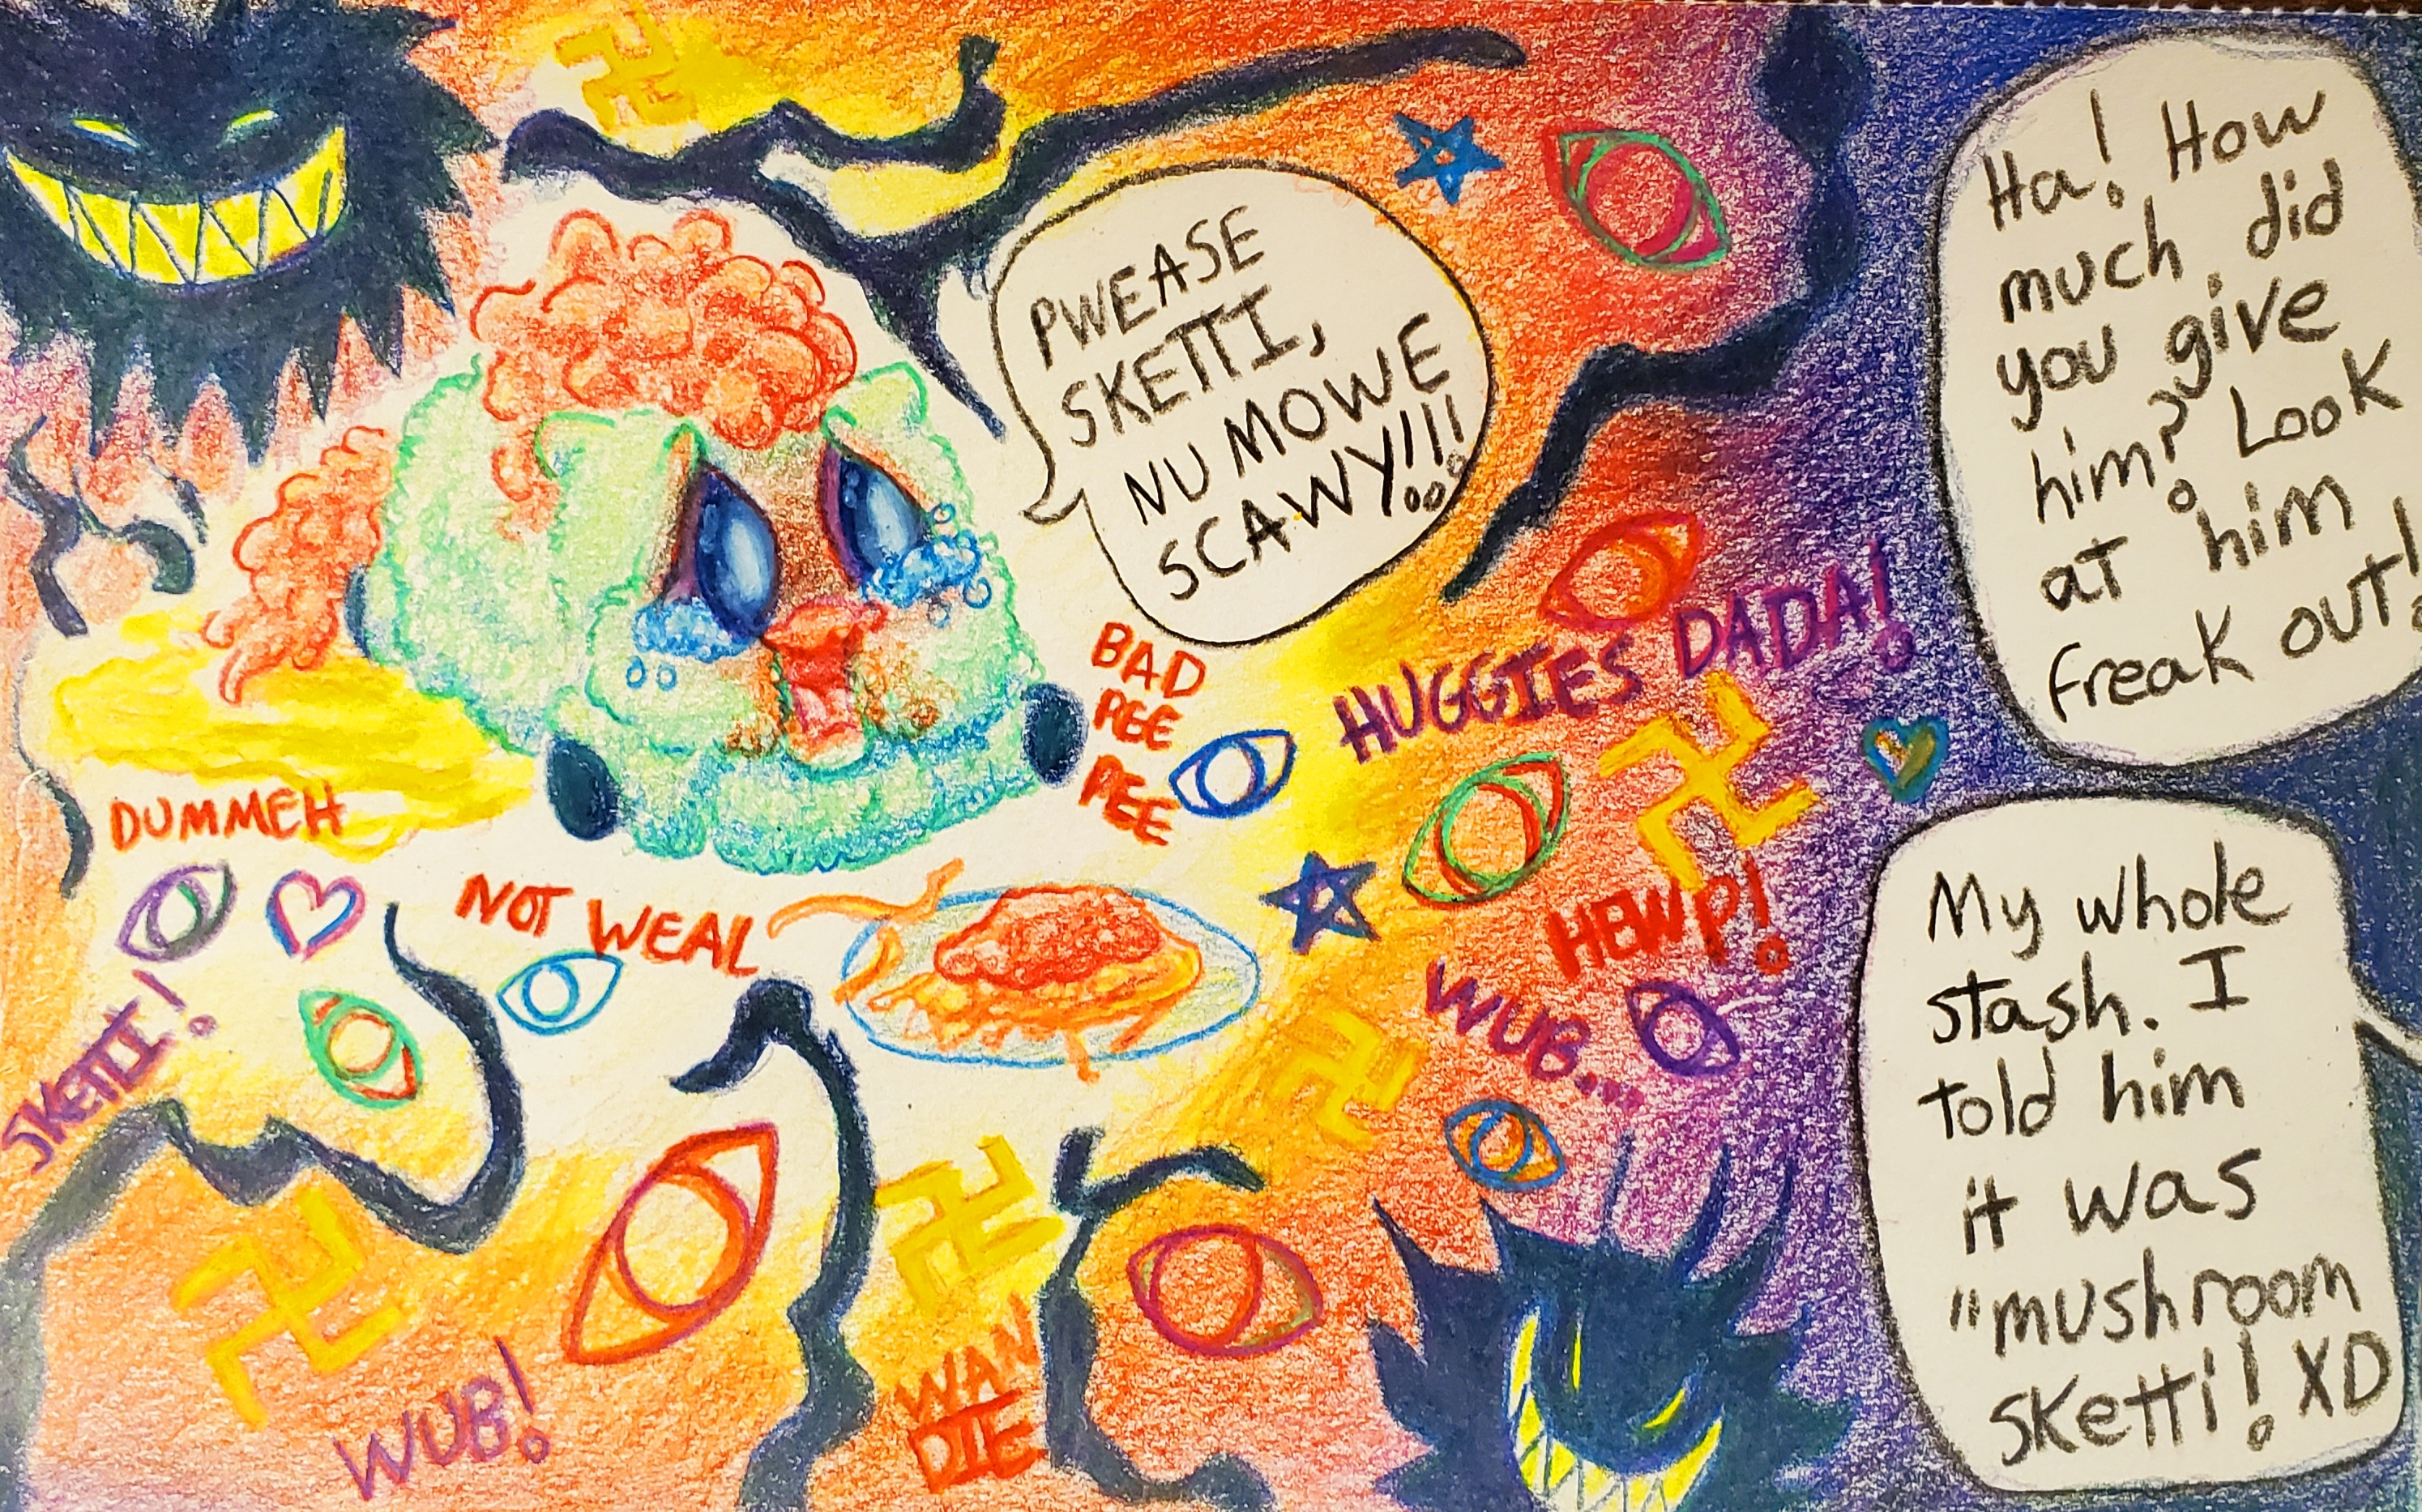 PWEASE
SKETTI,
NU MOWE
SCAWY!!!
Ha! How
much did
you give
him? Look
at him
freak out!
BAD
PEE
PEE
HUGGIES DADA!
DUMMEH
NOT WEAL
HEWP!
WUB....
SKETTI!
My whole
stash. I
told him
it was
"mushroom
sketti! XD
WUB!
WAN
DIE